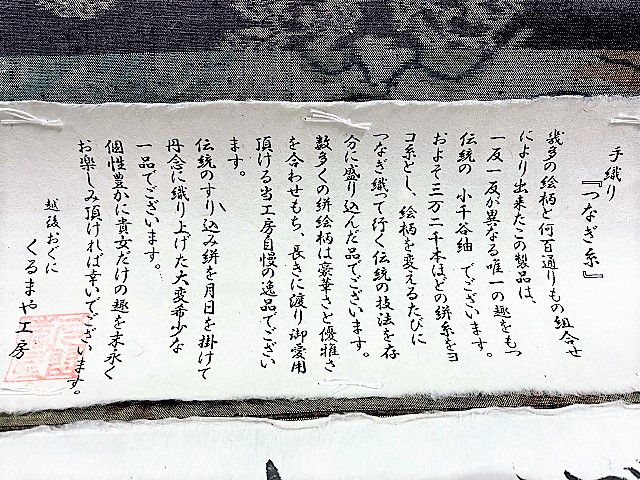 手織り
『つなぎ糸』
幾多の絵柄と何百通りもの組合せ
により出来たこの製品は、
一反一反が異なる唯一の趣をもつ
伝統の 小千谷紬 でございます。
およそ三万二千本ほどの絣糸をヨ
コ糸とし、絵柄を変えるたびに
つなぎ織って行く伝統の技法を存
分に盛り込んだ品でございます。
数多くの絣絵柄は豪華さと優雅さ
を合わせもち、長きに渡り御愛用
頂ける当工房自慢の逸品でござい
ます。
伝統のすり込み絣を月日を掛けて
丹念に織り上げた大変希少な
一品でございます。
個性豊かに貴女だけの趣を末永く
お楽しみ頂ければ幸いでございます。
越後おぐに
くるまや工房